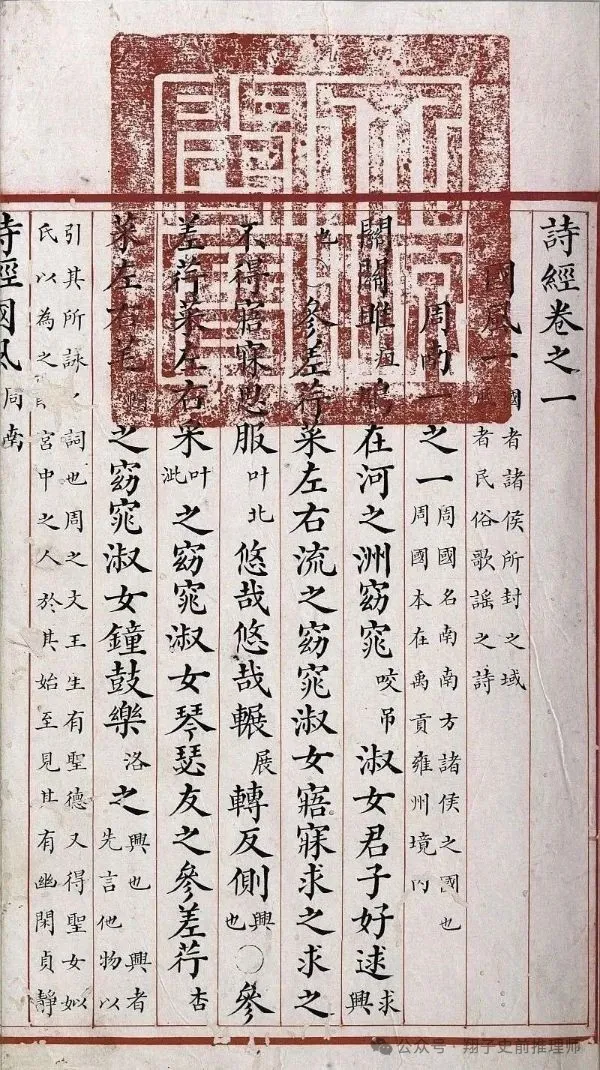 詩經卷之一
國風一
國者諸侯所封之域
者民俗歌謠之詩
周南一之一
周國名南南方諸侯之國也
周國本在禹貢雍州境內
關關雎疽鳩在河之洲窈窕咬吊淑女君子好逑求興
也〇參差荇菜左右流之窈窕淑女寤寐求之求之
不得寤寐思服叶北悠哉悠哉輾展轉反側興也〇參
差荇菜左右采叶泚之窈窕淑女琴瑟友之參差荇杏
菜左右芼之窈窕淑女鐘鼓樂洛之興也興者
先言他物以
引其所詠ノ詞也周之文王生有聖德又得聖女姒
氏以為之宮中之人於其始至見其有幽閑貞靜
詩經國風周南
文淵閣寶
公众号 · 翔子史前推理师